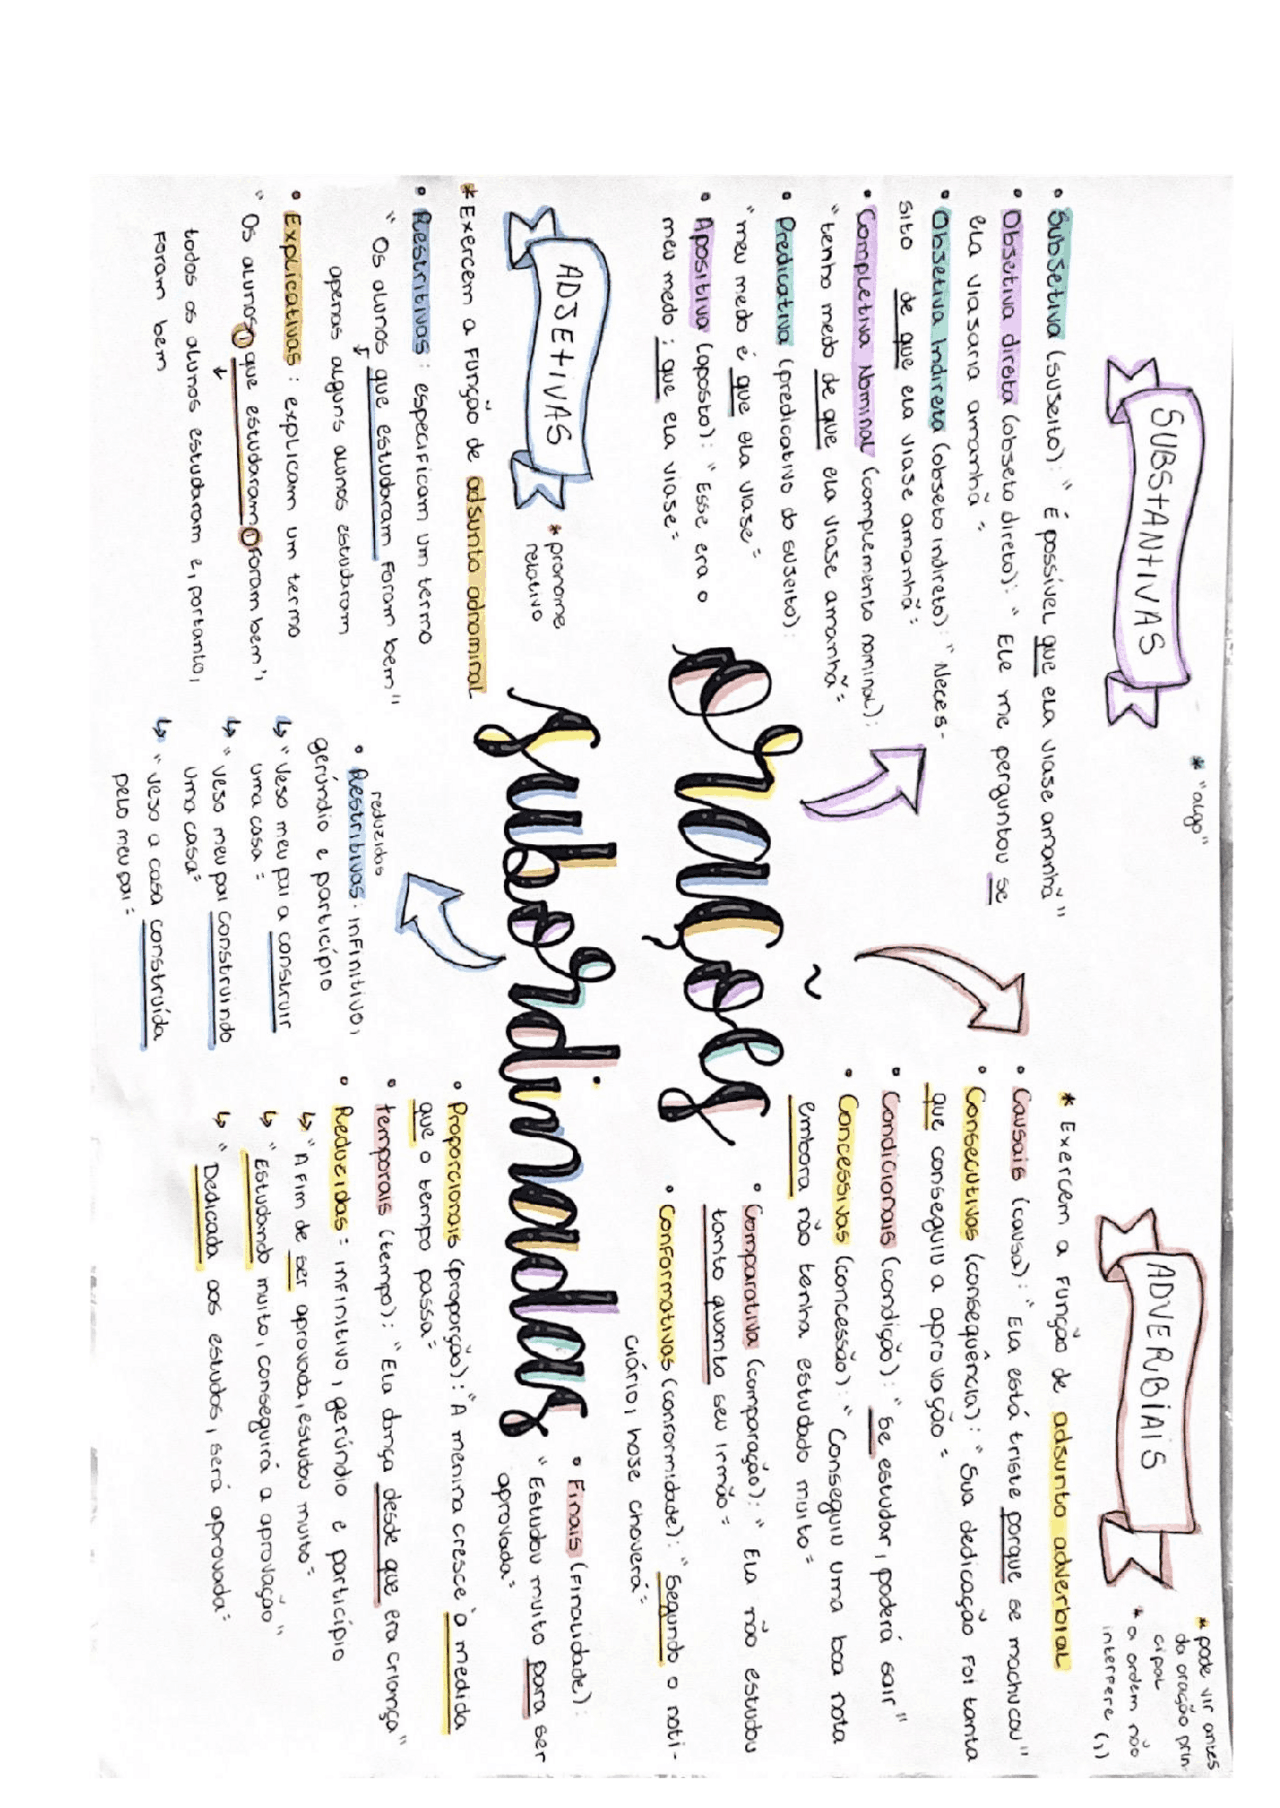 Orações
subordinadas
SUBSTANTIVAS
* "algo"
• Subjetiva (sujeito): " É possível que ela viaje amanhã"
• Objetiva direta (objeto direto): " Ele me perguntou se
ela viajaria amanhã"
• Objetiva Indireta (objeto indireto): " Neces-
sito de que ela viaje amanhã"
• Completiva Nominal (complemento nominal):
"tenho medo de que ela viaje amanhã"
• Predicativa (predicativo do sujeito):
"meu medo é que ela viaje"
• Apositiva (aposto): " Esse era o
meu medo: que ela viaje"
ADJETIVAS
* pronome
relativo
* Exercem a Função de adjunto adnominal
• Restritivas: especificam um termo
" Os alunos que estudaram Foram bem"
apenas alguns alunos estudaram
• Explicativas: explicam um termo
" Os alunos, que estudaram, Foram bem"
todos os alunos estudaram e, portanto,
Foram bem
reduzidas
• Restritivas: infinitivo,
gerúndio e particípio
↳ "Vejo meu pai a construir
uma casa"
↳ "vejo meu pai construindo
uma casa"
↳ "vejo a casa construída
pelo meu pai"
ADVERBIAIS
* pode vir antes
da oração prin-
cipal
* a ordem não
interfere (,)
* Exercem a Função de adjunto adverbial
• Causais (causa): " Ela está triste porque se machucou"
• Consecutivas (consequência): " Sua dedicação Foi tanta
que conseguiu a aprovação"
• Condicionais (condição): " Se estudar, poderá sair"
• Concessivas (concessão): " Conseguiu uma boa nota
embora não tenha estudado muito"
• Comparativa (comparação): " Ela não estudou
tanto quanto seu irmão"
• Conformativas (conformidade): " Segundo o noti-
ciário, hoje choverá"
• Finais (Finalidade):
" Estudou muito para ser
aprovada"
• Proporcionais (proporção): "A menina cresce à medida
que o tempo passa"
• temporais (tempo): "Ela dança desde que era criança"
• Reduzidas: infinitivo, gerúndio e particípio
↳ "A Fim de ser aprovada, estudou muito"
↳ "Estudando muito, conseguirá a aprovação"
↳ " Dedicada aos estudos, será aprovada"